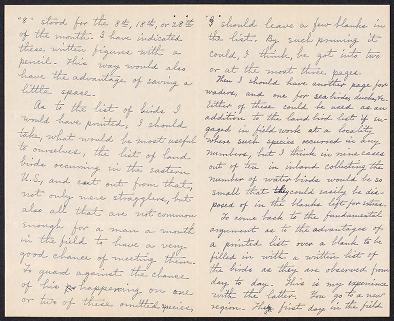 "8" stood for the 8th, 18th, or 28th
of the month. I have indicated
these written figures with a
pencil. This way would also
have the advantage of saving a
little space.
As to the list of birds I
would have printed, I should
take, what would be most useful
to ourselves, the list of land
birds occurring in the eastern
U.S., and cast out from that,
not only mere stragglers, but
also all that are not common
enough for a man a month
in the field to have a very
good chance of meeting them.
To guard against the chance
of his happening on one
or two of these omitted species,
I should leave a few blanks in
the list. By such pruning it
could, I think, be got into two
or at the most three pages.
Then I should have another page for
waders, and one for sea birds, ducks, &c.
Either of these could be used as an
addition to the land bird list if en-
gaged in field work at a locality
where such species occurred in any
numbers, but I think in nine cases
out of ten in inland collecting the
number of water birds would be so
small that they could easily be dis-
posed of in the blanks left for extras.
To come back to the fundamental
argument as to the advantages of
a printed list over a blank to be
filled in with a written list of
the birds as they are observed from
day to day. This is my experience
with the latter. You go to a new
region. The first day in the field